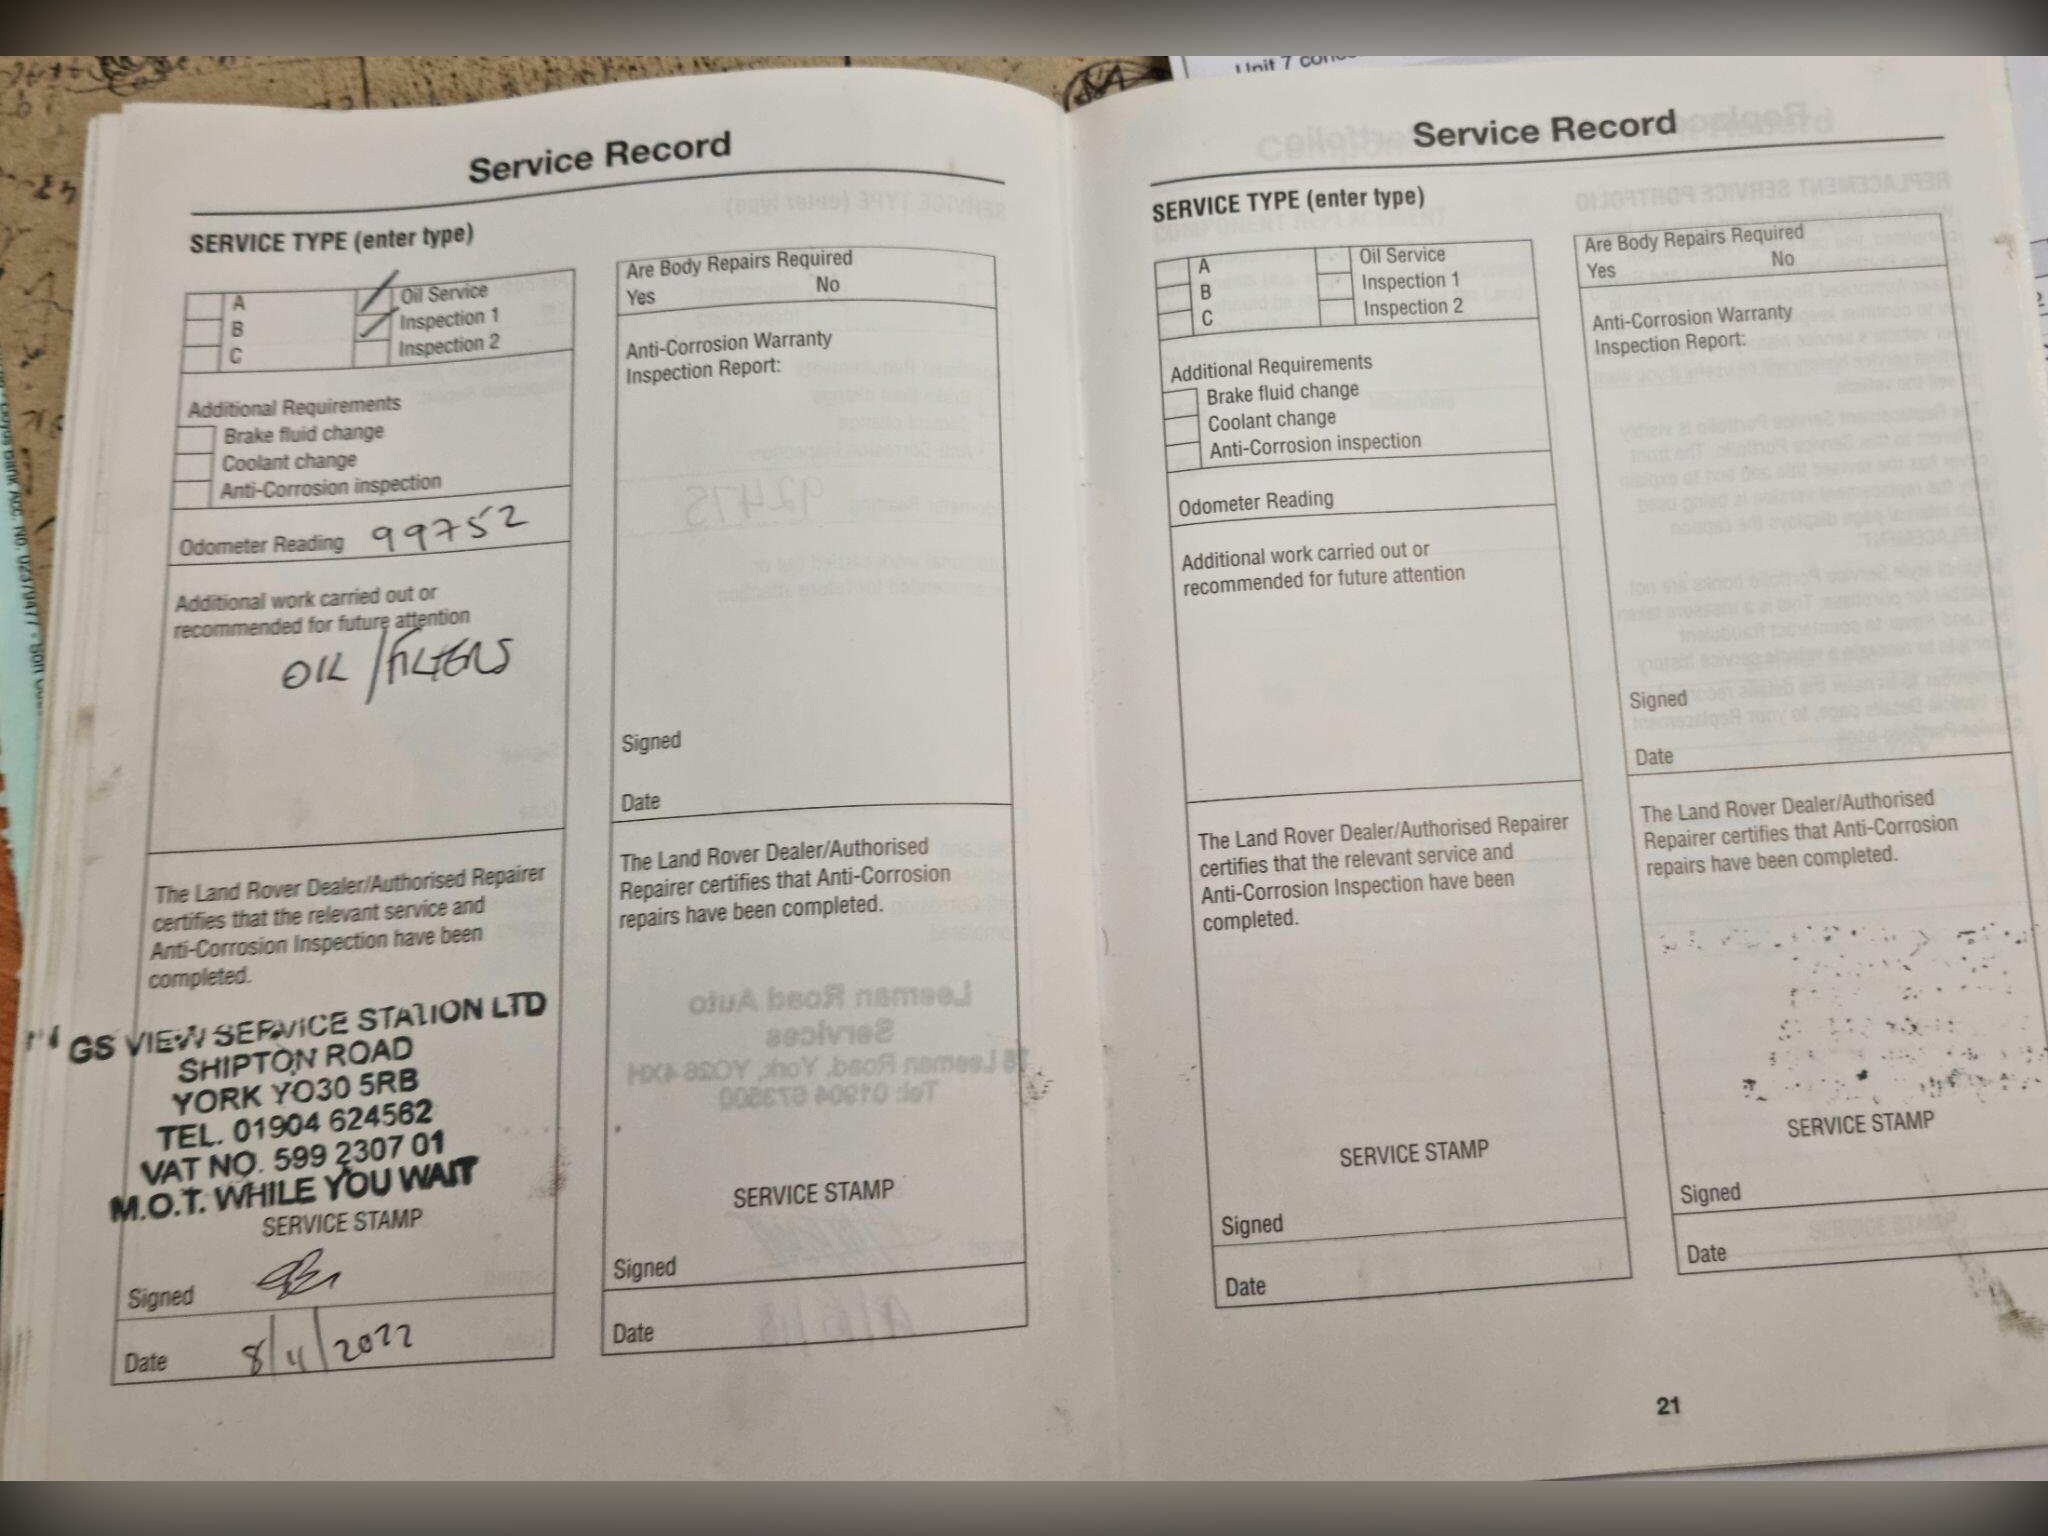 Unit 7
Service Record
SERVICE TYPE (enter type)
A
B
C
Oil Service
Inspection 1
Inspection 2
Additional Requirements
Brake fluid change
Coolant change
Anti-Corrosion inspection
Odometer Reading 99752
Additional work carried out or
recommended for future attention
OIL/FILTERS
The Land Rover Dealer/Authorised Repairer
certifies that the relevant service and
Anti-Corrosion Inspection have been
completed.
GS VIEW SERVICE STATION LTD
SHIPTON ROAD
YORK YO30 5RB
TEL. 01904 624562
VAT NO. 599 2307 01
M.O.T. WHILE YOU WAIT
SERVICE STAMP
Signed
Date 8/11/2022
Are Body Repairs Required
Yes No
Anti-Corrosion Warranty
Inspection Report:
Signed
Date
The Land Rover Dealer/Authorised
Repairer certifies that Anti-Corrosion
repairs have been completed.
SERVICE STAMP
Signed
Date
Service Record
SERVICE TYPE (enter type)
A
B
C
Oil Service
Inspection 1
Inspection 2
Additional Requirements
Brake fluid change
Coolant change
Anti-Corrosion inspection
Odometer Reading
Additional work carried out or
recommended for future attention
The Land Rover Dealer/Authorised Repairer
certifies that the relevant service and
Anti-Corrosion Inspection have been
completed.
SERVICE STAMP
Signed
Date
Are Body Repairs Required
Yes No
Anti-Corrosion Warranty
Inspection Report:
Signed
Date
The Land Rover Dealer/Authorised
Repairer certifies that Anti-Corrosion
repairs have been completed.
SERVICE STAMP
Signed
Date
21